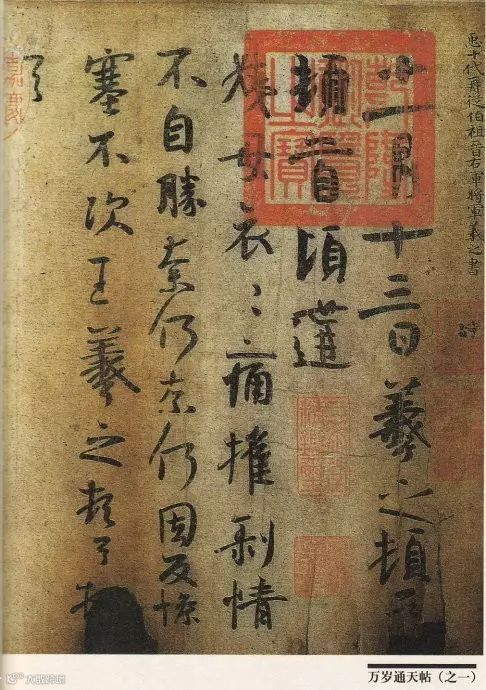 臣十代再從伯祖晉右軍將軍羲之書
十一月十三日羲之頓首
頓首頃遘
姨母哀〻痛摧剝情
不自勝奈何奈何因反慘
塞不次王羲之頓首頓
首
万岁通天帖（之一）